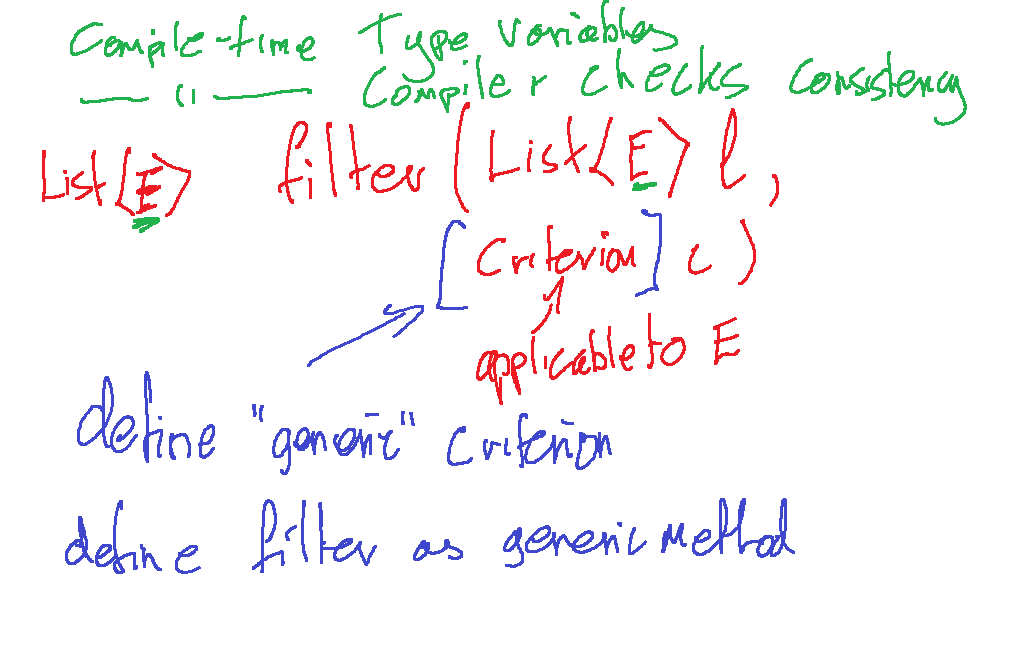 Compile-time Type variables
—— " —— Compiler checks consistency
List<E> filter (List<E> l,
[Criterion] c)
applicable to E
define "generic" criterion
define filter as generic method